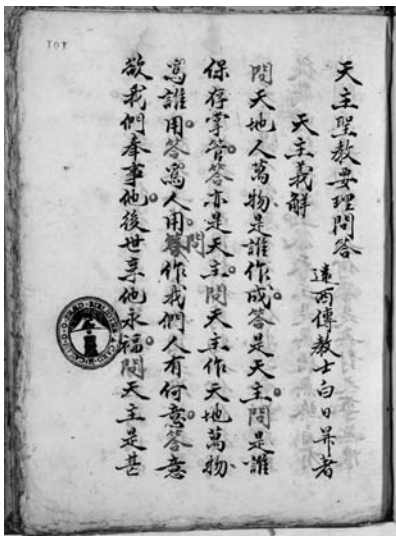 天主聖教要理問答
遠西傳教士白日昇著
天主義解
問天地人萬物是誰作成。答是天主。問是誰
保存掌管。答亦是天主。問天主作天地萬物
爲誰用。答爲人用。問作我們人有何意。答意
欲我們奉事他。後世享他永福。問天主是甚